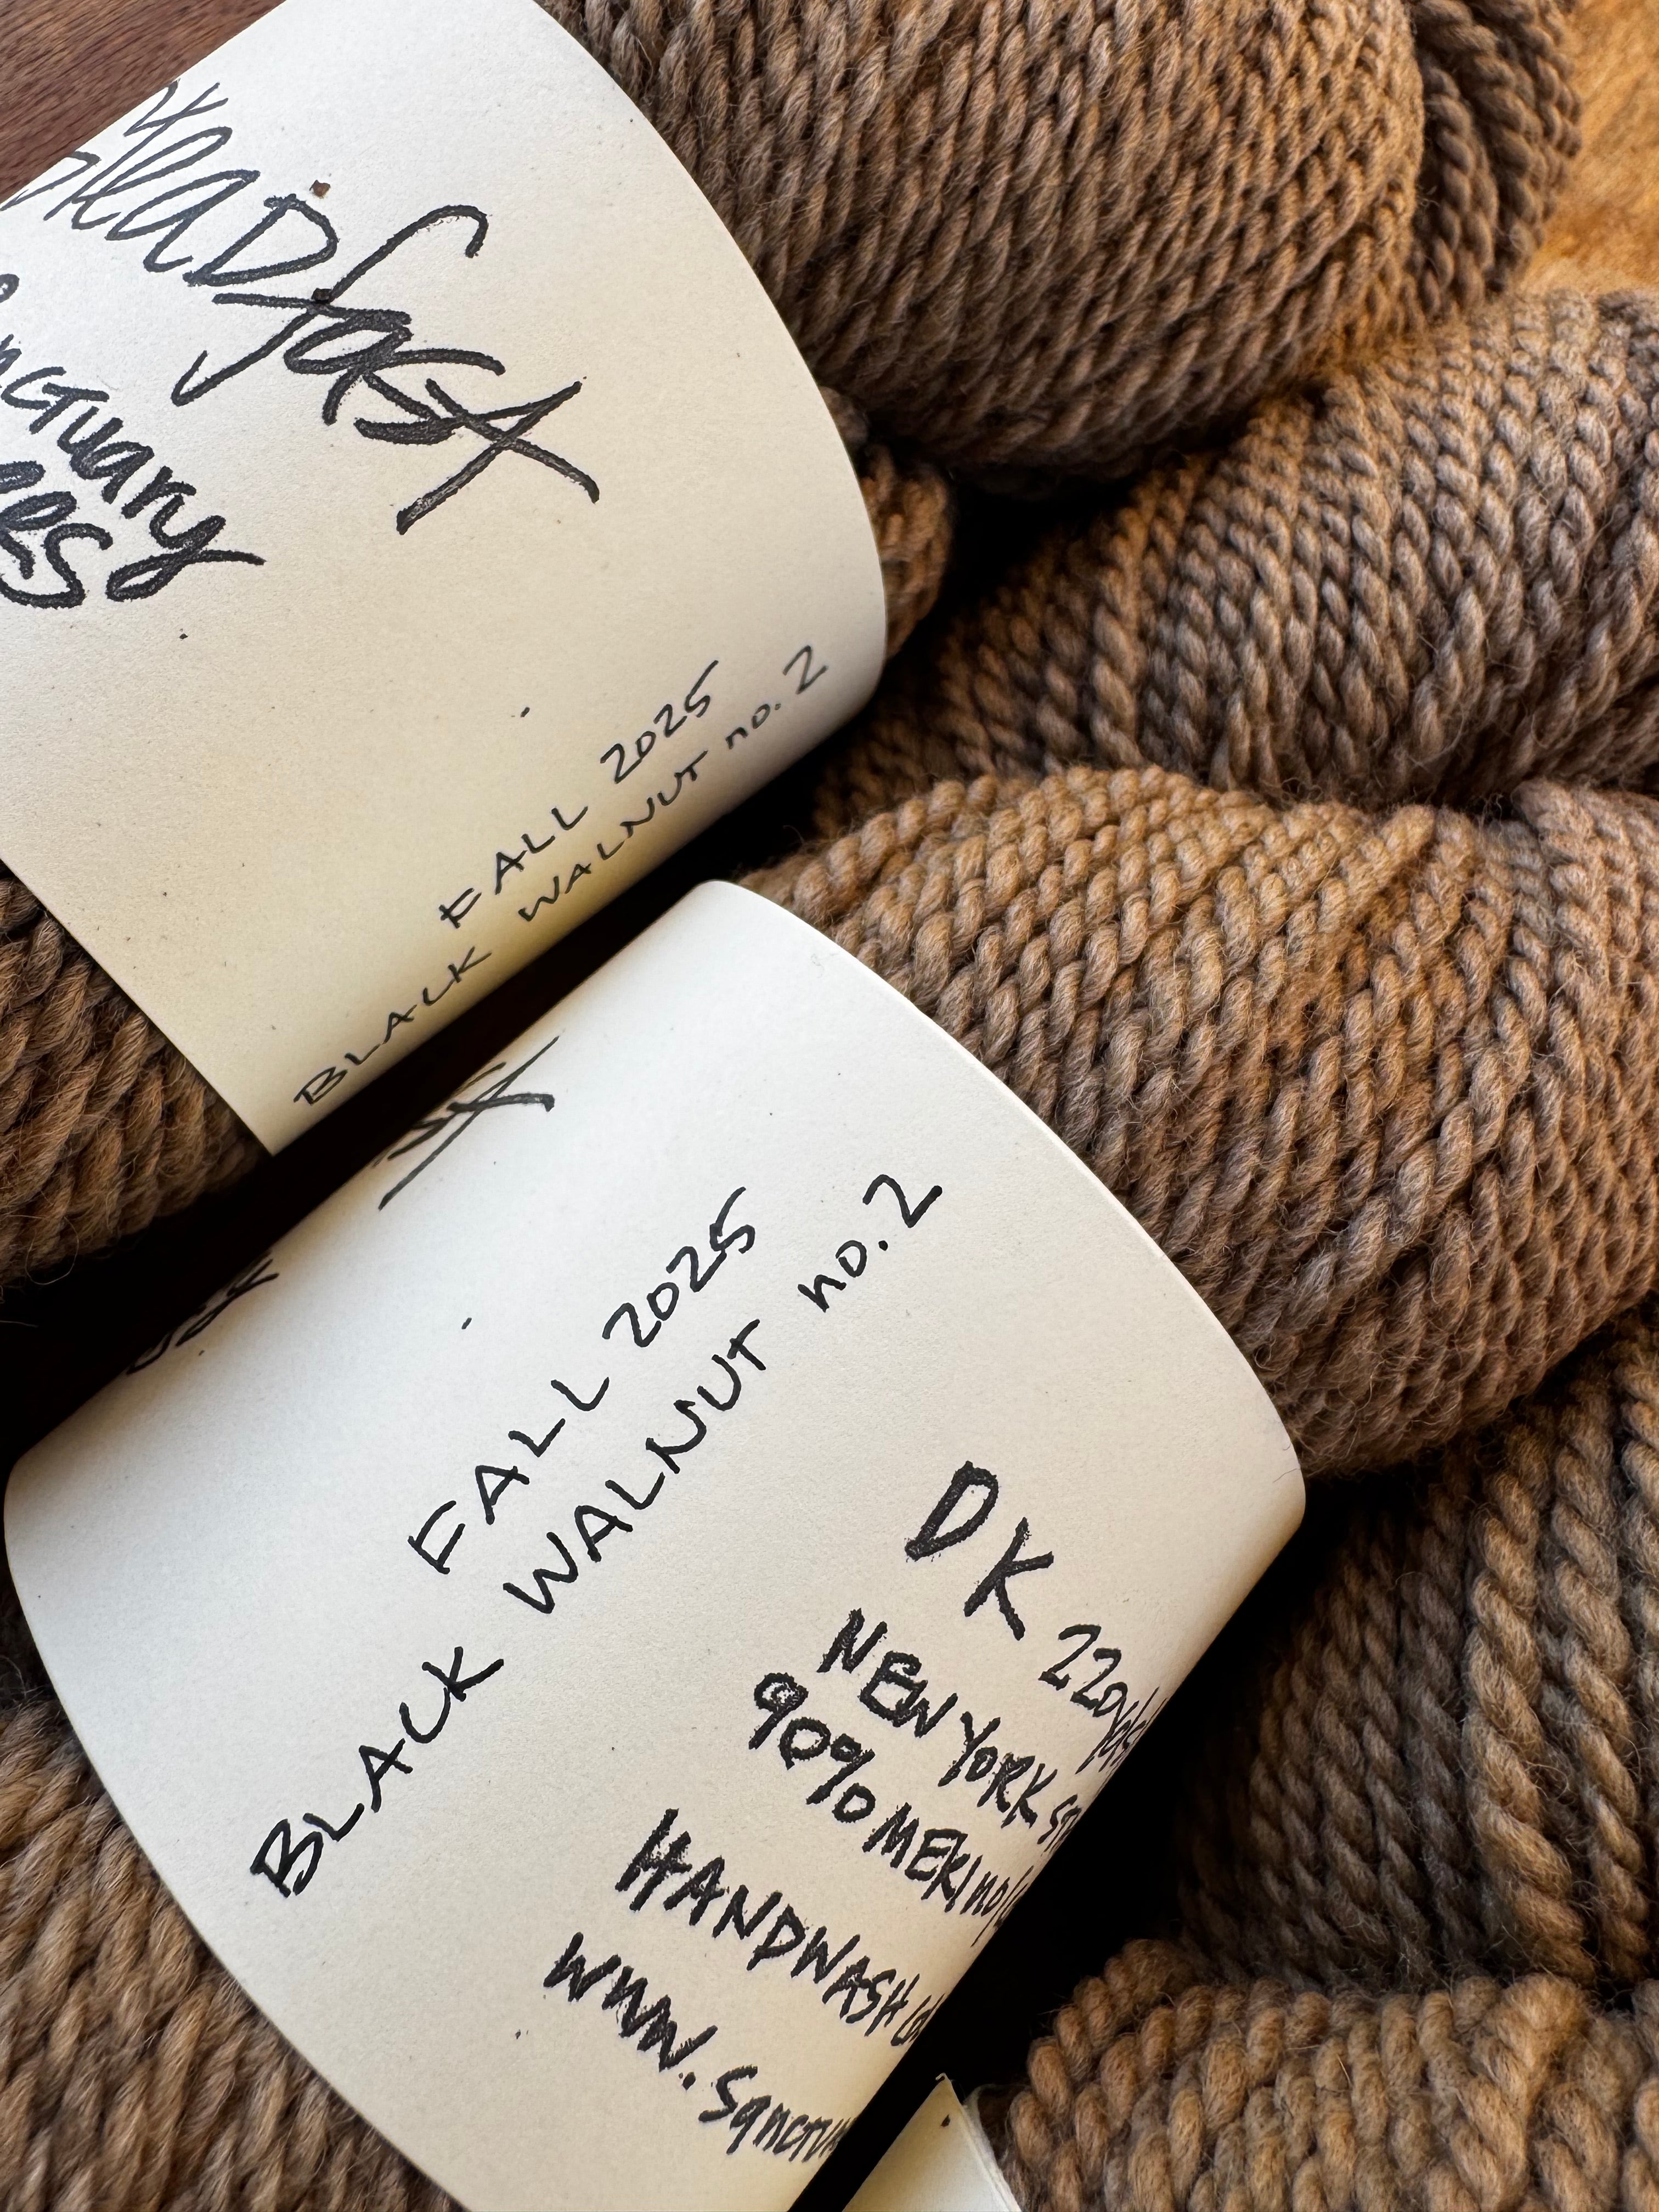 SteaDfast
FALL 2025
BLACK WALNUT no. 2
FALL 2025
BLACK WALNUT no. 2
DK 220yds
NEW YORK
90% MERINO
HANDWASH
www.sanctu